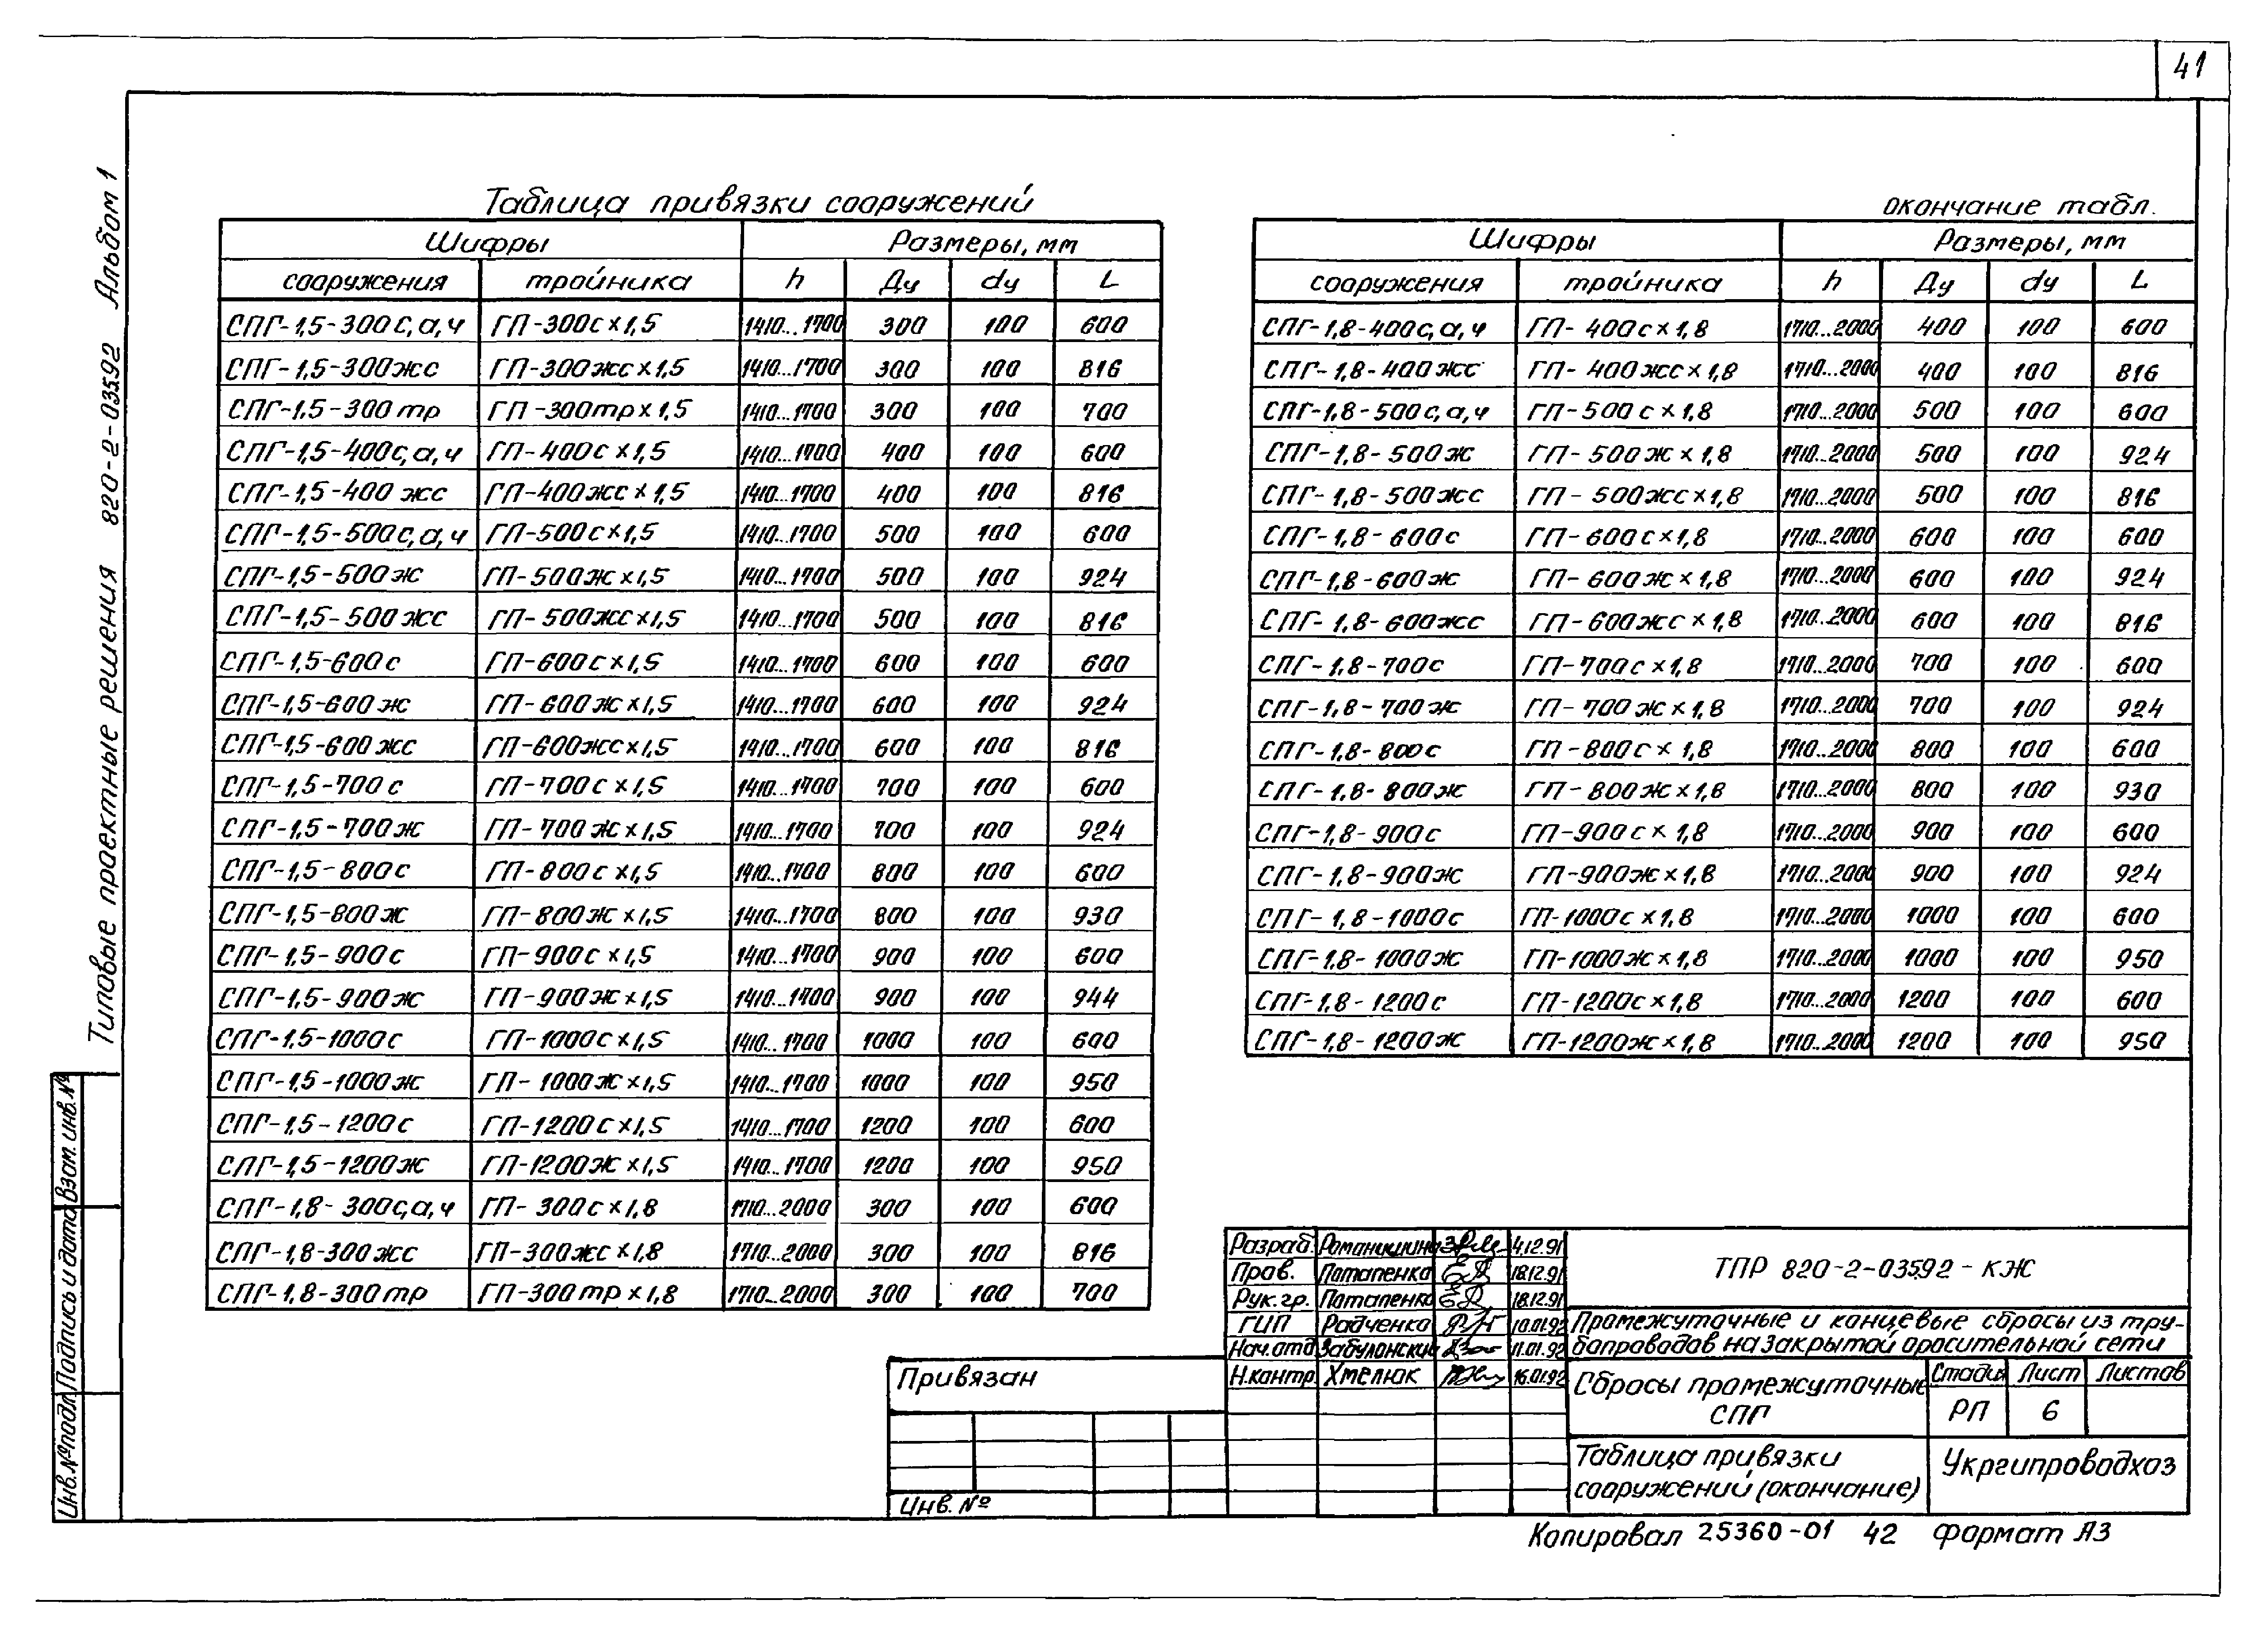 41
Типовые проектные решения 820-2-03592 Альбом 1
Таблица привязки сооружений
Шифры Размеры, мм
сооружения тройника h Ду dу L
СПГ-1,5-300с,а,ч ГП-300с×1,5 1410...1700 300 100 600
СПГ-1,5-300жс ГП-300жс×1,5 1410...1700 300 100 816
СПГ-1,5-300тр ГП-300тр×1,5 1410...1700 300 100 700
СПГ-1,5-400с,а,ч ГП-400с×1,5 1410...1700 400 100 600
СПГ-1,5-400жс ГП-400жс×1,5 1410...1700 400 100 816
СПГ-1,5-500с,а,ч ГП-500с×1,5 1410...1700 500 100 600
СПГ-1,5-500ж ГП-500ж×1,5 1410...1700 500 100 924
СПГ-1,5-500жс ГП-500жс×1,5 1410...1700 500 100 816
СПГ-1,5-600с ГП-600с×1,5 1410...1700 600 100 600
СПГ-1,5-600ж ГП-600ж×1,5 1410...1700 600 100 924
СПГ-1,5-600жс ГП-600жс×1,5 1410...1700 600 100 816
СПГ-1,5-700с ГП-700с×1,5 1410...1700 700 100 600
СПГ-1,5-700ж ГП-700ж×1,5 1410...1700 700 100 924
СПГ-1,5-800с ГП-800с×1,5 1410...1700 800 100 600
СПГ-1,5-800ж ГП-800ж×1,5 1410...1700 800 100 930
СПГ-1,5-900с ГП-900с×1,5 1410...1700 900 100 600
СПГ-1,5-900ж ГП-900ж×1,5 1410...1700 900 100 944
СПГ-1,5-1000с ГП-1000с×1,5 1410...1700 1000 100 600
СПГ-1,5-1000ж ГП-1000ж×1,5 1410...1700 1000 100 950
СПГ-1,5-1200с ГП-1200с×1,5 1410...1700 1200 100 600
СПГ-1,5-1200ж ГП-1200ж×1,5 1410...1700 1200 100 950
СПГ-1,8-300с,а,ч ГП-300с×1,8 1710...2000 300 100 600
СПГ-1,8-300жс ГП-300жс×1,8 1710...2000 300 100 816
СПГ-1,8-300тр ГП-300тр×1,8 1710...2000 300 100 700
окончание табл.
Шифры Размеры, мм
сооружения тройника h Ду dу L
СПГ-1,8-400с,а,ч ГП-400с×1,8 1710...2000 400 100 600
СПГ-1,8-400жс ГП-400жс×1,8 1710...2000 400 100 816
СПГ-1,8-500с,а,ч ГП-500с×1,8 1710...2000 500 100 600
СПГ-1,8-500ж ГП-500ж×1,8 1710...2000 500 100 924
СПГ-1,8-500жс ГП-500жс×1,8 1710...2000 500 100 816
СПГ-1,8-600с ГП-600с×1,8 1710...2000 600 100 600
СПГ-1,8-600ж ГП-600ж×1,8 1710...2000 600 100 924
СПГ-1,8-600жс ГП-600жс×1,8 1710...2000 600 100 816
СПГ-1,8-700с ГП-700с×1,8 1710...2000 700 100 600
СПГ-1,8-700ж ГП-700ж×1,8 1710...2000 700 100 924
СПГ-1,8-800с ГП-800с×1,8 1710...2000 800 100 600
СПГ-1,8-800ж ГП-800ж×1,8 1710...2000 800 100 930
СПГ-1,8-900с ГП-900с×1,8 1710...2000 900 100 600
СПГ-1,8-900ж ГП-900ж×1,8 1710...2000 900 100 924
СПГ-1,8-1000с ГП-1000с×1,8 1710...2000 1000 100 600
СПГ-1,8-1000ж ГП-1000ж×1,8 1710...2000 1000 100 950
СПГ-1,8-1200с ГП-1200с×1,8 1710...2000 1200 100 600
СПГ-1,8-1200ж ГП-1200ж×1,8 1710...2000 1200 100 950
Взам. инв. №
Подпись и дата
Инв. № подл.
Привязан
Инв. №
Разраб. Романишина 4.12.91
Пров. Потапенко 18.12.91
Рук. гр. Потапенко 18.12.91
ГИП Радченко 10.01.92
Нач. отд Забулонский 11.01.92
Н.контр. Хмелюк 16.01.92
ТПР 820-2-03592-КЖ
Промежуточные и концевые сбросы из тру-
бопроводов на закрытой оросительной сети
Сбросы промежуточные
СПГ
Стадия Лист Листов
РП 6
Таблица привязки
сооружений (окончание)
Укргипроводхоз
Копировал 25360-01 42 формат А3